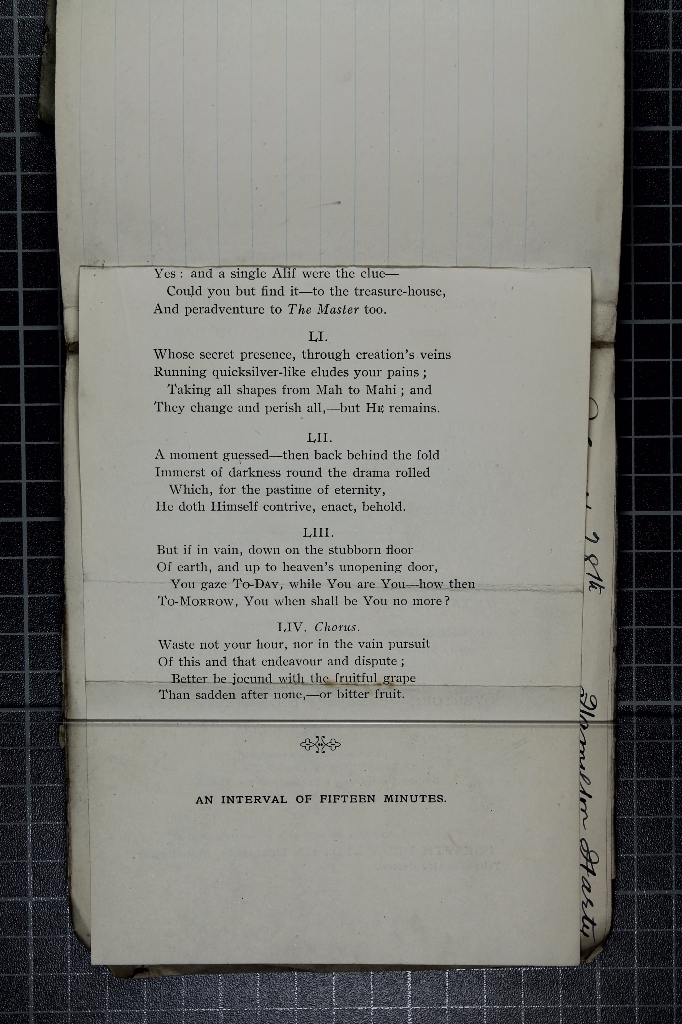 Yes: and a single Alif were the clue—
Could you but find it—to the treasure-house,
And peradventure to The Master too.
LI.
Whose secret presence, through creation's veins
Running quicksilver-like eludes your pains;
Taking all shapes from Mah to Mahi; and
They change and perish all,—but HE remains.
LII.
A moment guessed—then back behind the fold
Immerst of darkness round the drama rolled
Which, for the pastime of eternity,
He doth Himself contrive, enact, behold.
LIII.
But if in vain, down on the stubborn floor
Of earth, and up to heaven's unopening door,
You gaze TO-DAY, while You are You—how then
TO-MORROW, You when shall be You no more?
LIV. Chorus.
Waste not your hour, nor in the vain pursuit
Of this and that endeavour and dispute;
Better be jocund with the fruitful grape
Than sadden after none,—or bitter fruit.
AN INTERVAL OF FIFTEEN MINUTES.
28th
Hamilton Harty